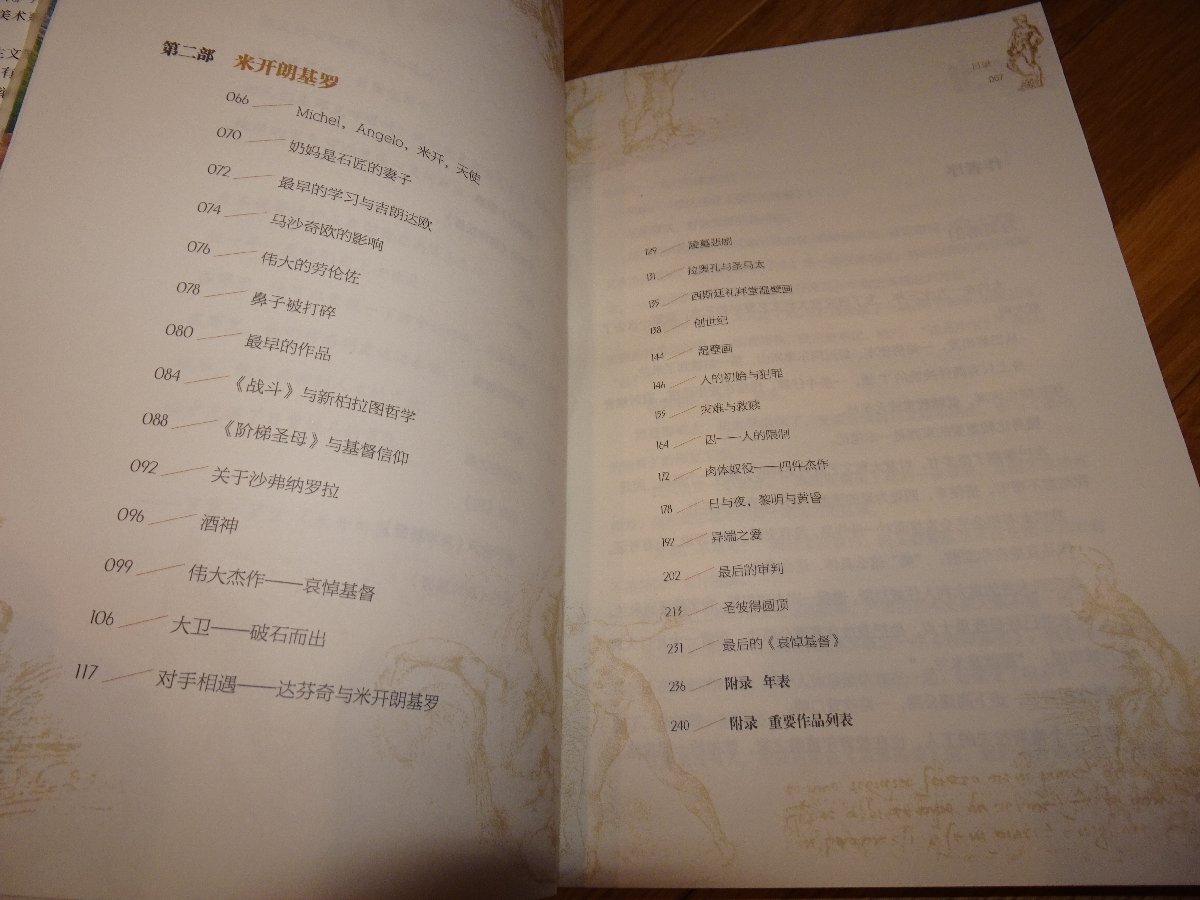 美术
第二部 米开朗基罗
066 Michel，Angelo，米开，天使
070 奶妈是石匠的妻子
072 最早的学习与吉朗达欧
074 马沙奇欧的影响
076 伟大的劳伦佐
078 鼻子被打碎
080 最早的作品
084 《战斗》与新柏拉图哲学
088 《阶梯圣母》与基督信仰
092 关于沙弗纳罗拉
096 酒神
099 伟大杰作——哀悼基督
106 大卫——破石而出
117 对手相遇——达芬奇与米开朗基罗
目录
007
129 陵墓悲剧
131 拉奥孔与圣马太
135 西斯廷礼拜堂湿壁画
138 创世纪
144 湿壁画
146 人的初始与犯罪
155 灾难与救赎
164 囚——人的限制
172 肉体奴役——四件杰作
178 日与夜，黎明与黄昏
192 异端之爱
202 最后的审判
213 圣彼得圆顶
231 最后的《哀悼基督》
236 附录 年表
240 附录 重要作品列表